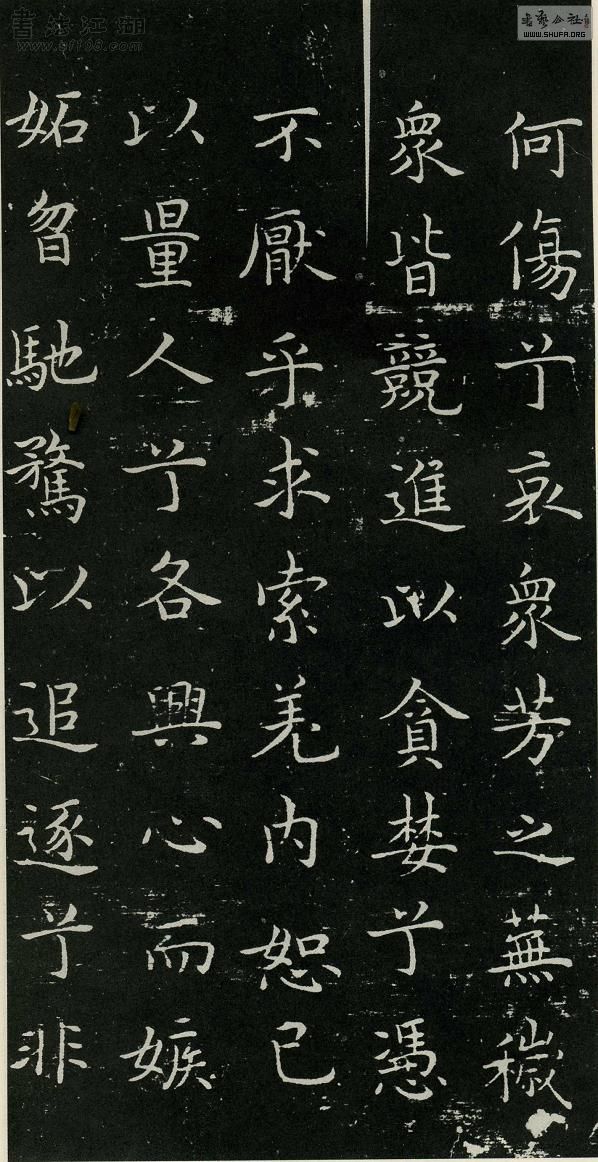 何傷兮哀衆芳之蕪穢
衆皆競進以貪婪兮憑
不厭乎求索羌内恕己
以量人兮各興心而嫉
妬曶馳騖以追逐兮非
書法江湖
www.gf108.com
書藝公社
WWW.SHUFA.ORG